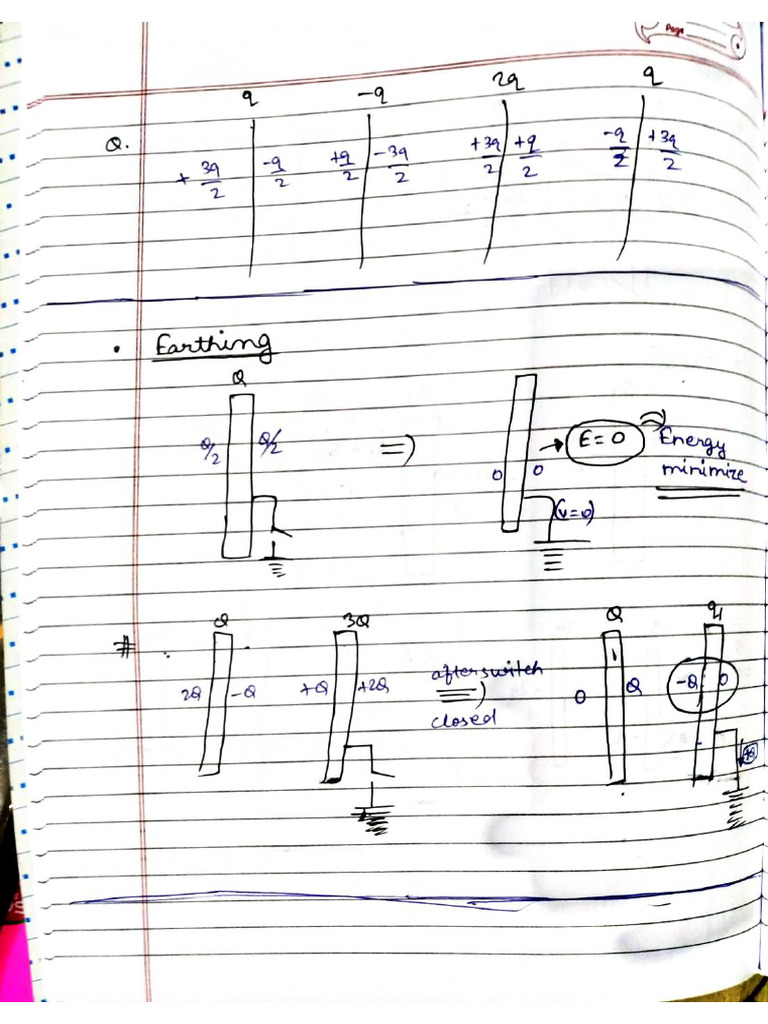 Page
q -q 2q q
Q.
+3q/2 -q/2 +q/2 -3q/2 +3q/2 +q/2 -q/2 +3q/2
• Earthing
Q
Q/2 Q/2 => 0 0 → E=0 Energy
minimize
(V=0)
# Q 3Q Q q1
2Q -Q +Q +2Q after switch => closed 0 Q -Q 0